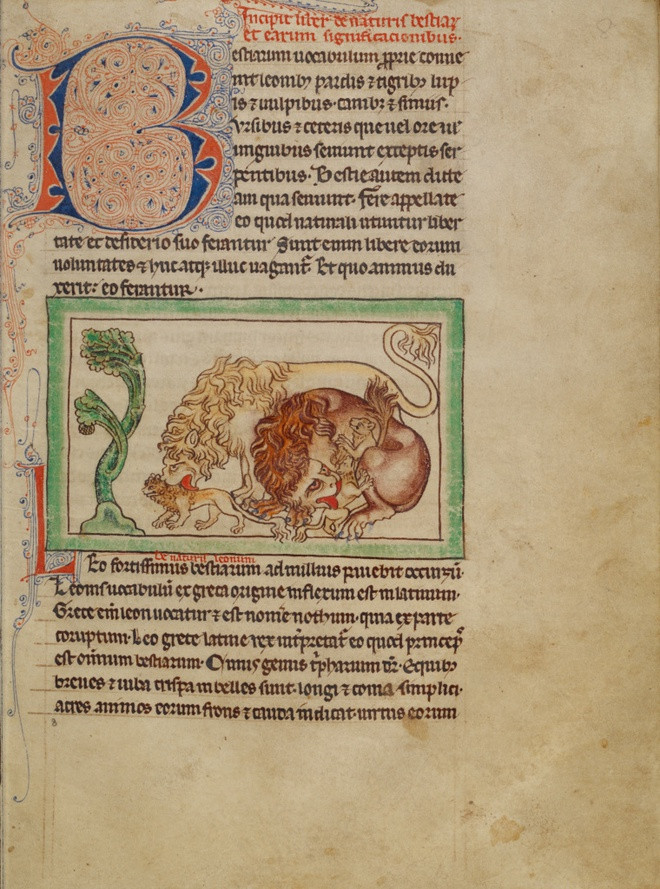 Incipit liber de naturis bestiar
et earum significacionibus.
Bestiarum uocabulum proprie conue
nit leonibꝫ pardis ⁊ tigribꝫ lup
is ⁊ uulpibus. canibꝫ ⁊ simiis.
Vrsibus ⁊ ceteris que uel ore uł
unguibus seuiunt exceptis ser
pentibus. Bestie autem dicte
am qua seuiunt. Fere appellate
eo quod naturali utuntur liber
tate et desiderio suo ferantur Sunt enim libere eorum
uoluntates ⁊ huc atqꝫ illuc uagant̄. Et quo animus du
xerit: eo feruntur.
De naturis leonum
Leo fortissimus bestiarum ad nullius pauebit occursū.
Leonis uocabulū ex greca origine inflexum est in latinum.
Grece eni leon uocatur ⁊ est nomē nothum. quia ex parte
coruptum. Leo grece latine rex int̄pretat̄ eo quod princeps
est omnium bestiarum. Cuius genus t̄pharium dr̄. Equibꝫ
breues ⁊ iuba crispa inbelles sunt. longi ⁊ coma simplici.
acres animos eorum frons ⁊ cauda indicat. uirtus eorum